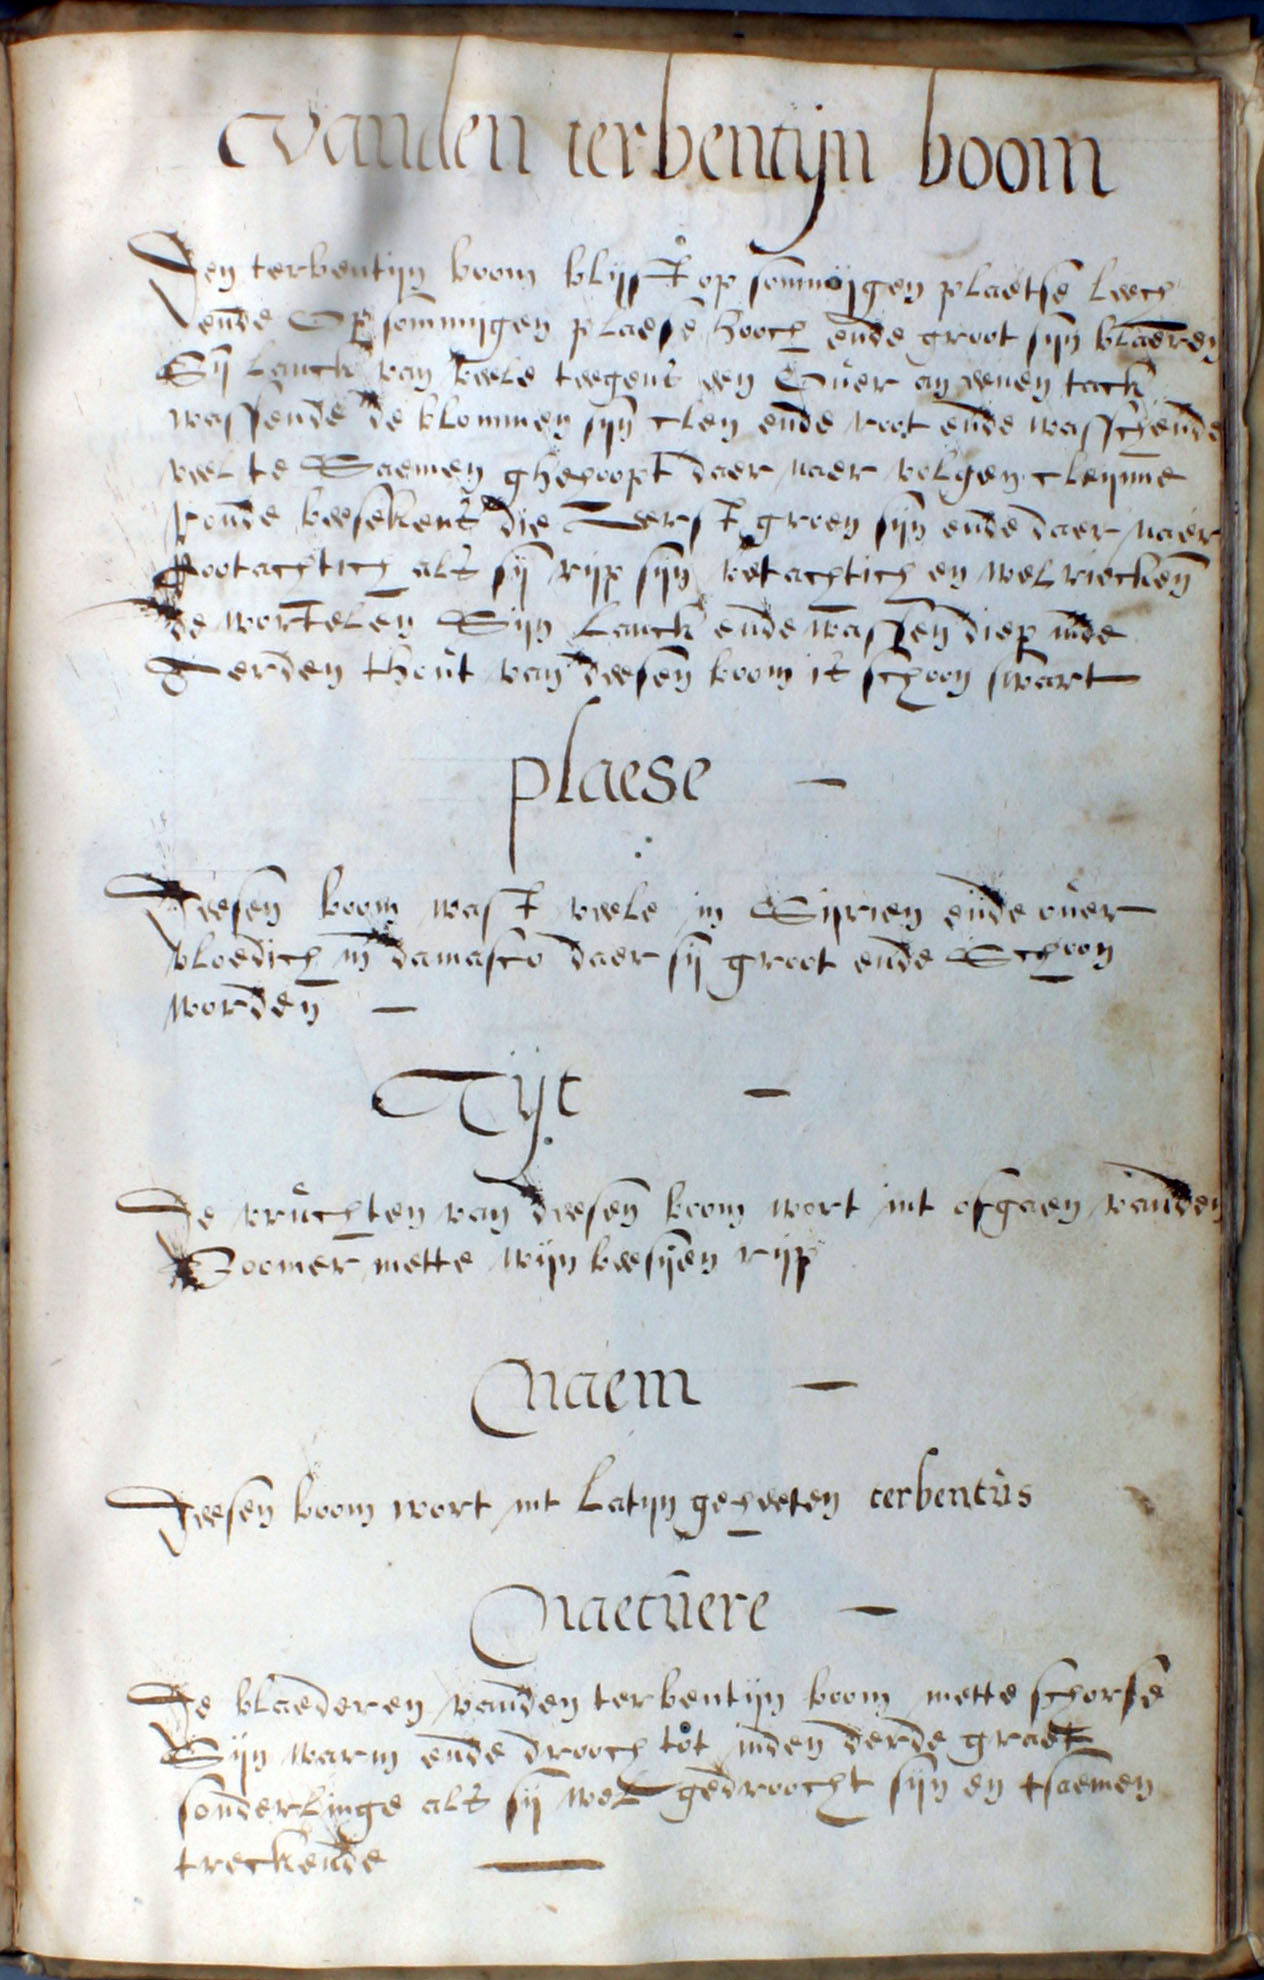 vanden terbentijn boom
Den terbentijn boom blijft op sommijgen plaetse leech
ende Op sommijgen plaese hooch ende groot sijn blaeren
Sij lanck van veele tegens een Over an eenen tack
wassende de blommen sijn cleen ende root ende wasschende
veel te Saemen ghehoopt daer naer volgen cleijnne
ronde beesekens die Eerst groen sijn ende daer naer
Rootachtich als sij rijp sijn vetachtich en welriecken
de wortelen Sijn lanck ende wassen diep inde
Eerden thout van deesen boom is schoon swart
plaese
Deesen boom wast veele in Sijrien ende over
vloedich in damasco daer sij groot ende Schoon
worden
Tijt
De vruchten van deesen boom wort int afgaen vanden
Soomer mette wijn beesijen rijp
naem
Deesen boom wort int Latijn geheeten terbentus
naetuere
De blaederen vanden terbentijn boom mette schorse
Sijn warm ende drooch tot inden derde graet
sonderlinge als sij wel gedroocht sijn en tsaemen
treckende